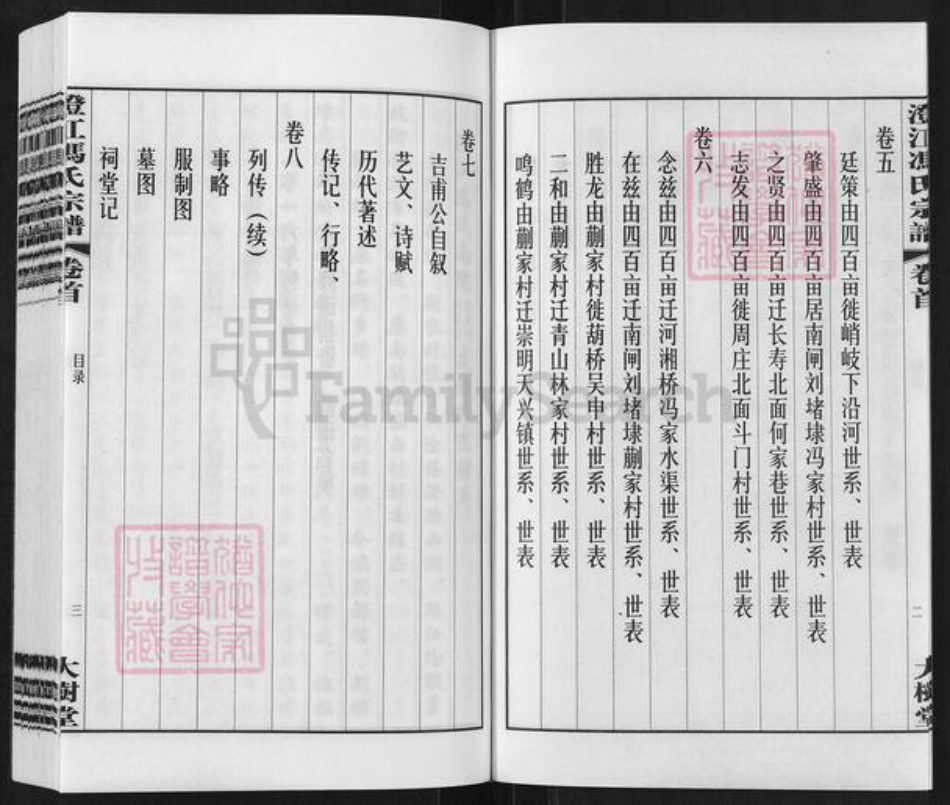 澄江冯氏宗谱 卷首
二
大樹堂
卷五
廷策由四百亩徙峭岐下沿河世系、世表
肇盛由四百亩居南闸刘堵埭冯家村世系、世表
之贤由四百亩迁长寿北面何家巷世系、世表
志发由四百亩徙周庄北面斗门村世系、世表
卷六
念兹由四百亩迁河湘桥冯家水渠世系、世表
在兹由四百亩迁南闸刘堵埭蒯家村世系、世表
胜龙由蒯家村徙葫桥吴申村世系、世表
二和由蒯家村迁青山林家村世系、世表
鸣鹤由蒯家村迁崇明天兴镇世系、世表
卷七
吉甫公自叙
艺文、诗赋
历代著述
传记、行略、
卷八
列传（续）
事略
服制图
墓图
祠堂记
澄江馮氏宗譜 卷首
目录
三
大樹堂
FamilySearch
譜學會
收藏